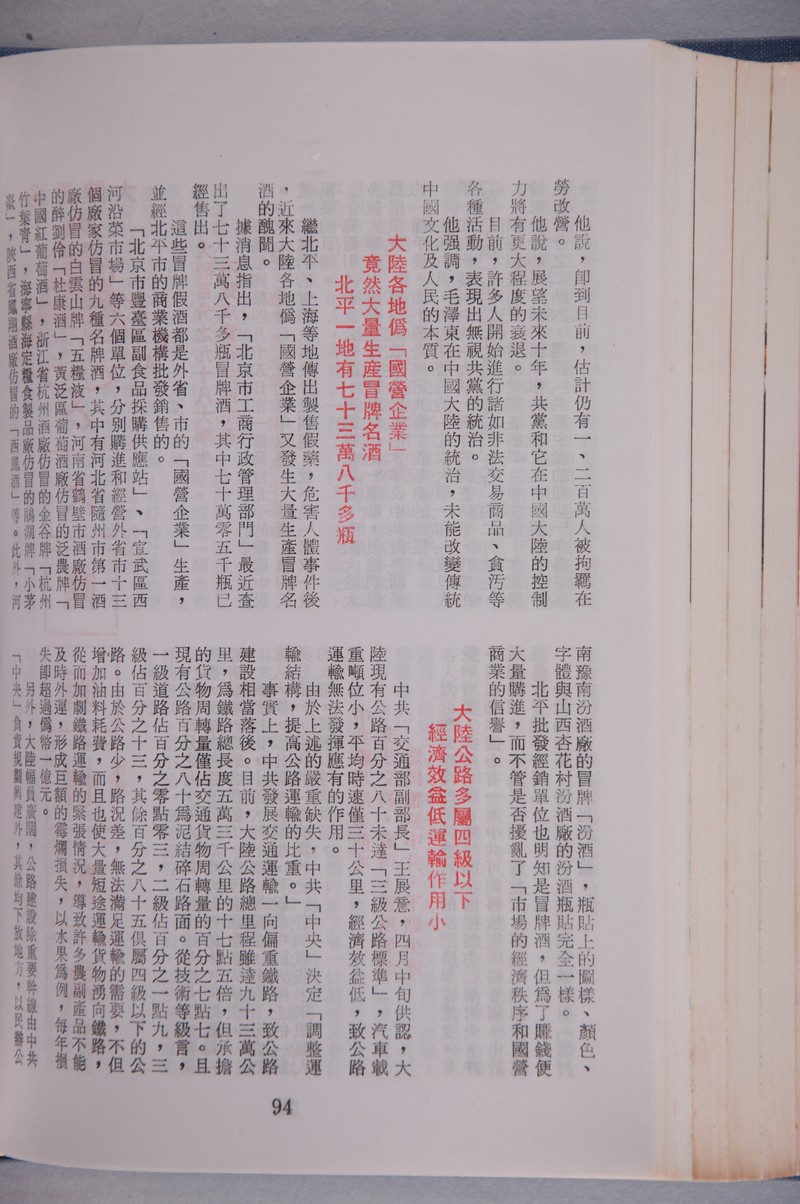 他說，卽到目前，估計仍有一、二百萬人被拘羈在
勞改營。
他說，展望未來十年，共黨和它在中國大陸的控制
力將有更大程度的衰退。
目前，許多人開始進行諸如非法交易商品、貪汚等
各種活動，表現出無視共黨的統治。
他强調，毛澤東在中國大陸的統治，未能改變傳統
中國文化及人民的本質。
大陸各地僞「國營企業」
竟然大量生產冒牌名酒
北平一地有七十三萬八千多瓶
繼北平、上海等地傳出製售假藥，危害人體事件後
，近來大陸各地僞「國營企業」又發生大量生產冒牌名
酒的醜聞。
據消息指出，「北京市工商行政管理部門」最近查
出了七十三萬八千多瓶冒牌酒，其中七十萬零五千瓶已
經售出。
這些冒牌假酒都是外省、市的「國營企業」生產，
並經北平市的商業機構批發銷售的。
「北京市豐臺區副食品採購供應站」、「宣武區西
河沿菜市場」等六個單位，分別購進和經營外省市十三
個廠家仿冒的九種名牌酒，其中有河北省隨州市第一酒
廠仿冒的白雲山牌「五糧液」，河南省鶴壁市酒廠仿冒
的醉劉伶「杜康酒」，黃泛區葡萄酒廠仿冒的泛農牌「
中國紅葡萄酒」，浙江省杭州酒廠仿冒的金谷牌「杭州
竹葉青」，海寧縣海定糧食製品廠仿冒的鵑湖牌「小茅
臺」，陝西省鳳翔酒廠仿冒的「西鳳酒」等。此外，河
南豫南汾酒廠的冒牌「汾酒」，瓶貼上的圖樣、顏色、
字體與山西杏花村汾酒廠的汾酒瓶貼完全一樣。
北平批發經銷單位也明知是冒牌酒，但爲了賺錢便
大量購進，而不管是否擾亂了「市場的經濟秩序和國營
商業的信譽」。
大陸公路多屬四級以下
經濟效益低運輸作用小
中共「交通部副部長」王展意，四月中旬供認，大
陸現有公路百分之八十未達「三級公路標準」，汽車載
重噸位小，平均時速僅三十公里，經濟效益低，致公路
運輸無法發揮應有的作用。
由於上述的嚴重缺失，中共「中央」決定「調整運
輸結構，提高公路運輸的比重。」
事實上，中共發展交通運輸一向偏重鐵路，致公路
建設相當落後。目前，大陸公路總里程雖達九十三萬公
里，爲鐵路總長度五萬三千公里的十七點五倍，但承擔
的貨物周轉量僅佔交通貨物周轉量的百分之七點七。且
現有公路百分之八十爲泥結碎石路面。從技術等級言，
一級道路佔百分之零點零三，二級佔百分之一點九，三
級佔百分之十三，其餘百分之八十五俱屬四級以下的公
路。由於公路少，路況差，無法滿足運輸的需要，不但
增加油料耗費，而且也使大量短途運輸貨物湧向鐵路，
從而加劇鐵路運輸的緊張情況，導致許多農副產品不能
及時外運，形成巨額的霉爛損失，以水果爲例，每年損
失卽超過僞幣一億元。
另外，大陸幅員廣闊，公路建設除重要幹線由中共
「中央」負責規劃興建外，其餘均下放地方，以民辦公
94